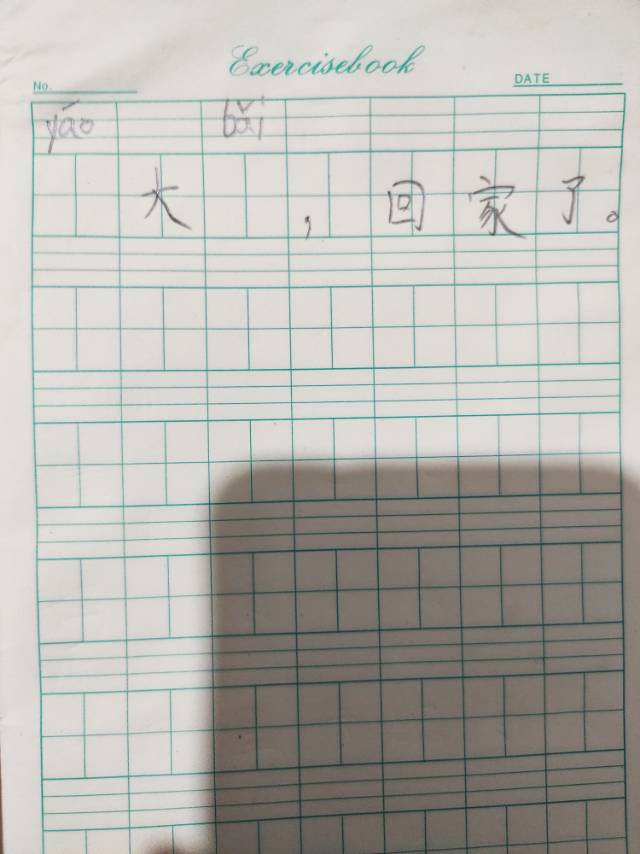 Exercisebook
No. DATE
yáo bǎi
大 ，回家了。